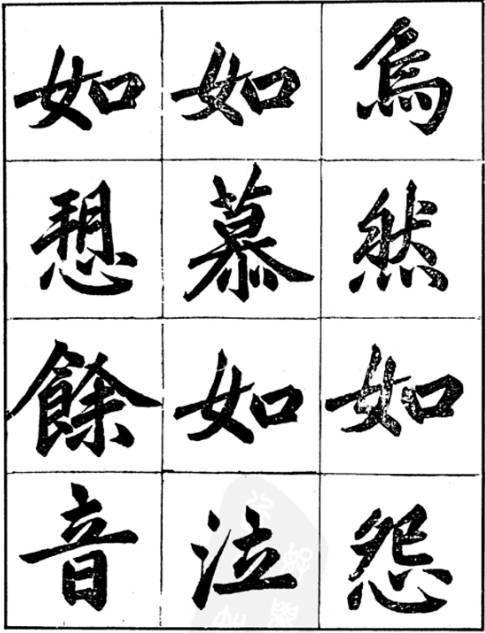 烏然如怨
如慕如泣
如愬餘音